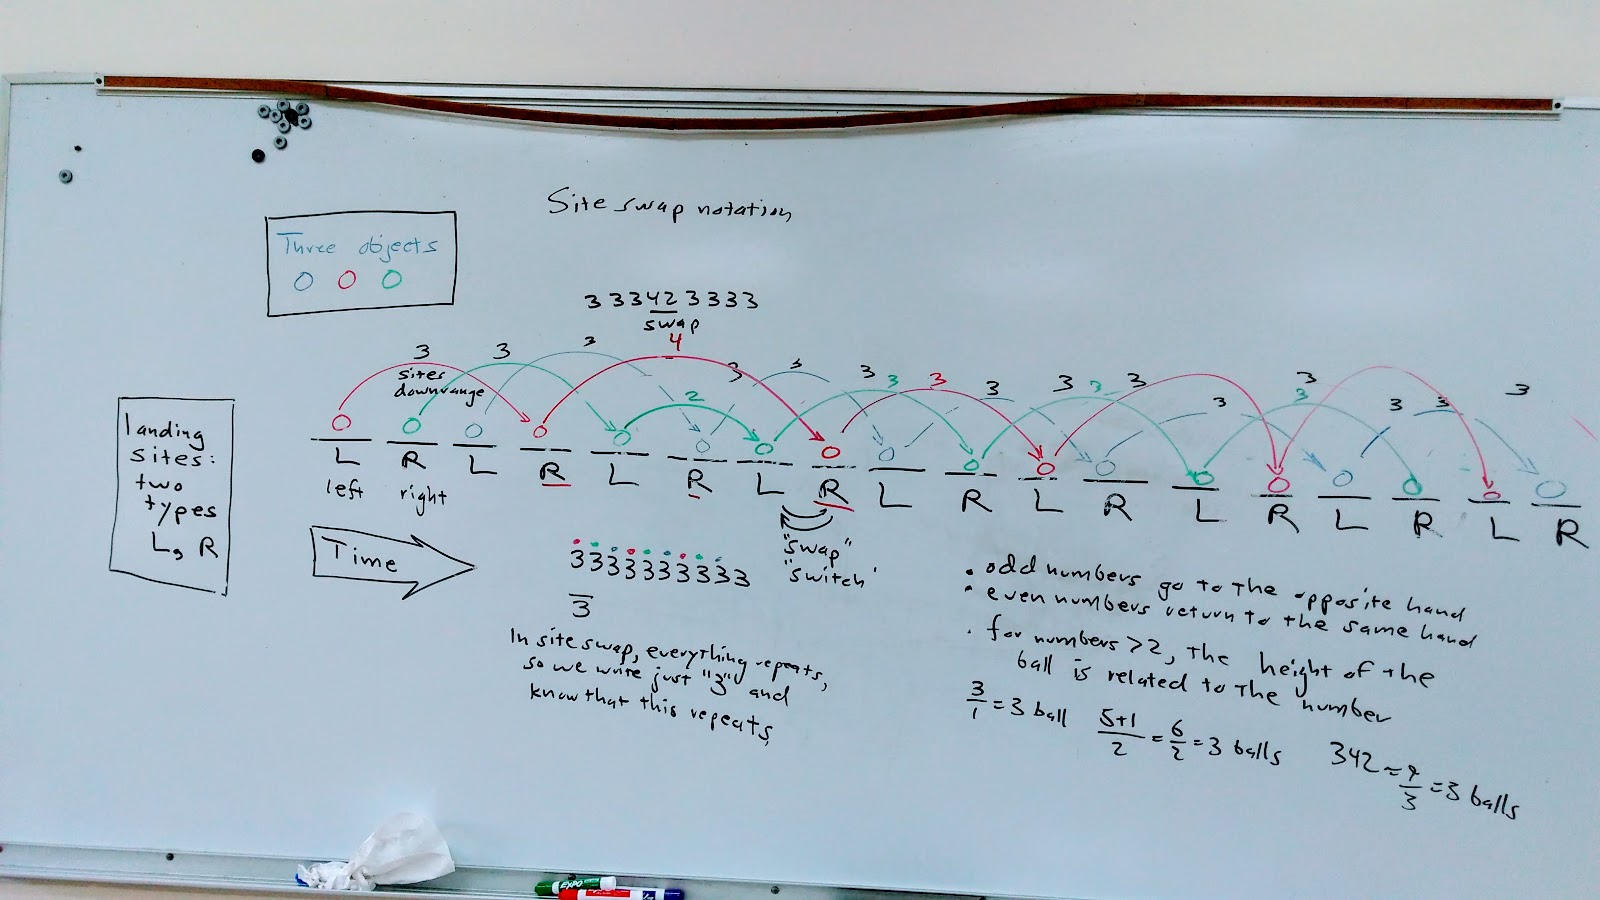 Site swap notation
Three objects
3 3 3 4 2 3 3 3 3
swap
3 3 3 4 3 3 3 3 3 3 3 3 3 3 3 3 3 3 3
sites
downrange
2
landing
sites:
two
types
L, R
L R L R L R L R L R L R L R L R L R
left right
Time
"swap"
"switch'
3333333333
3
In site swap, everything repeats,
so we write just "3" and
know that this repeats,
• odd numbers go to the opposite hand
• even numbers return to the same hand
• for numbers >2, the height of the
ball is related to the number
3/1 = 3 ball
5+1/2 = 6/2 = 3 balls
342 = 9/3 = 3 balls
EXPO